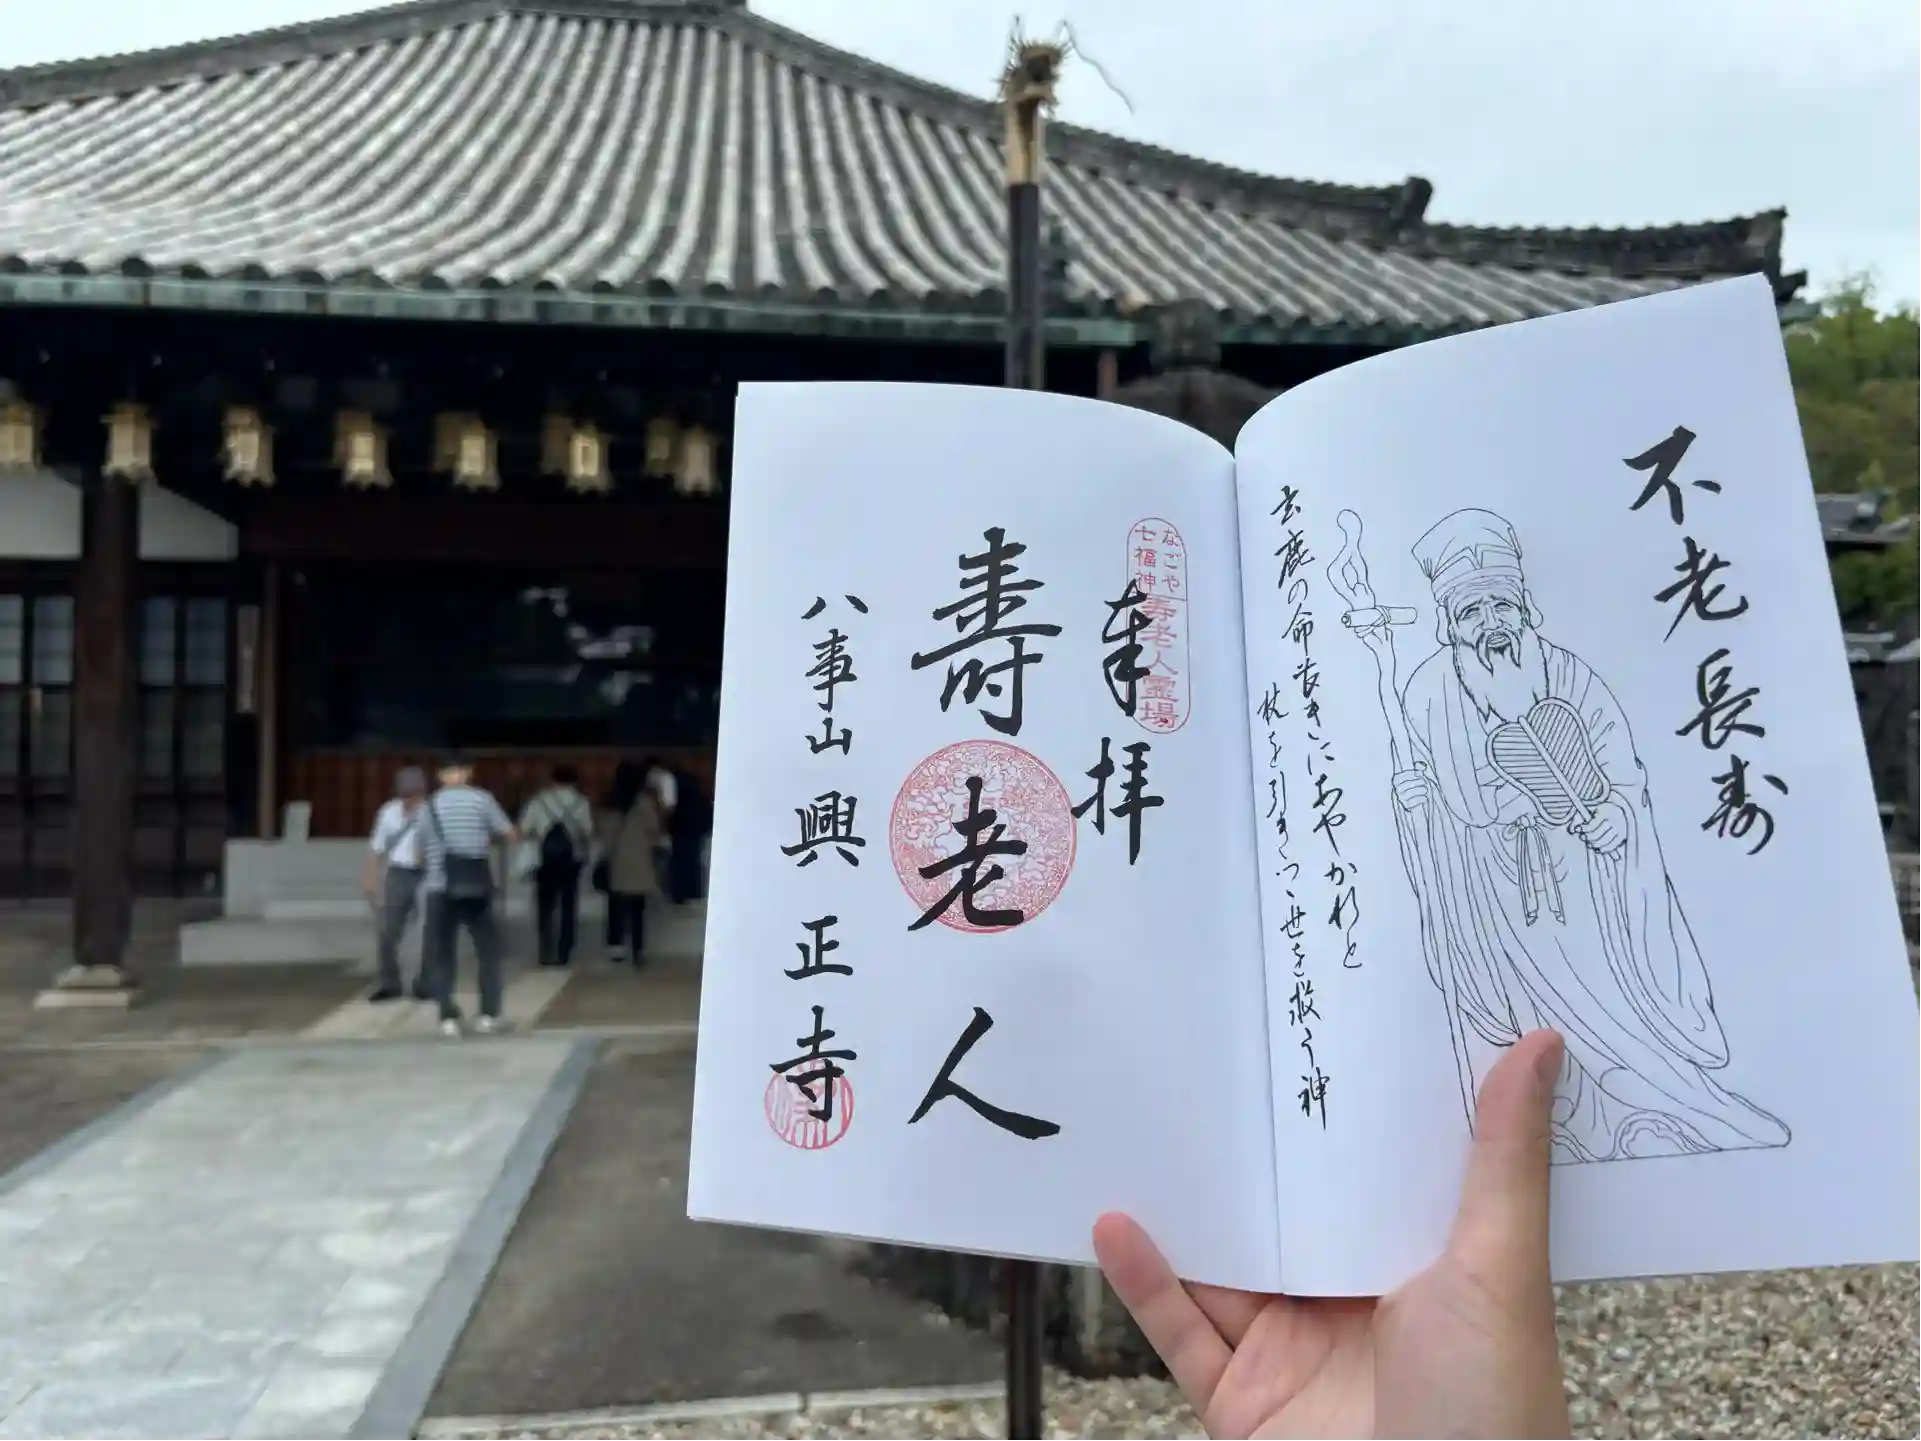 不老長寿
玄鹿の命長きにあやかれと
杖を引きつゝ世を救う神
なごや
七福神
寿老人霊場
奉拝
壽老人
八事山興正寺